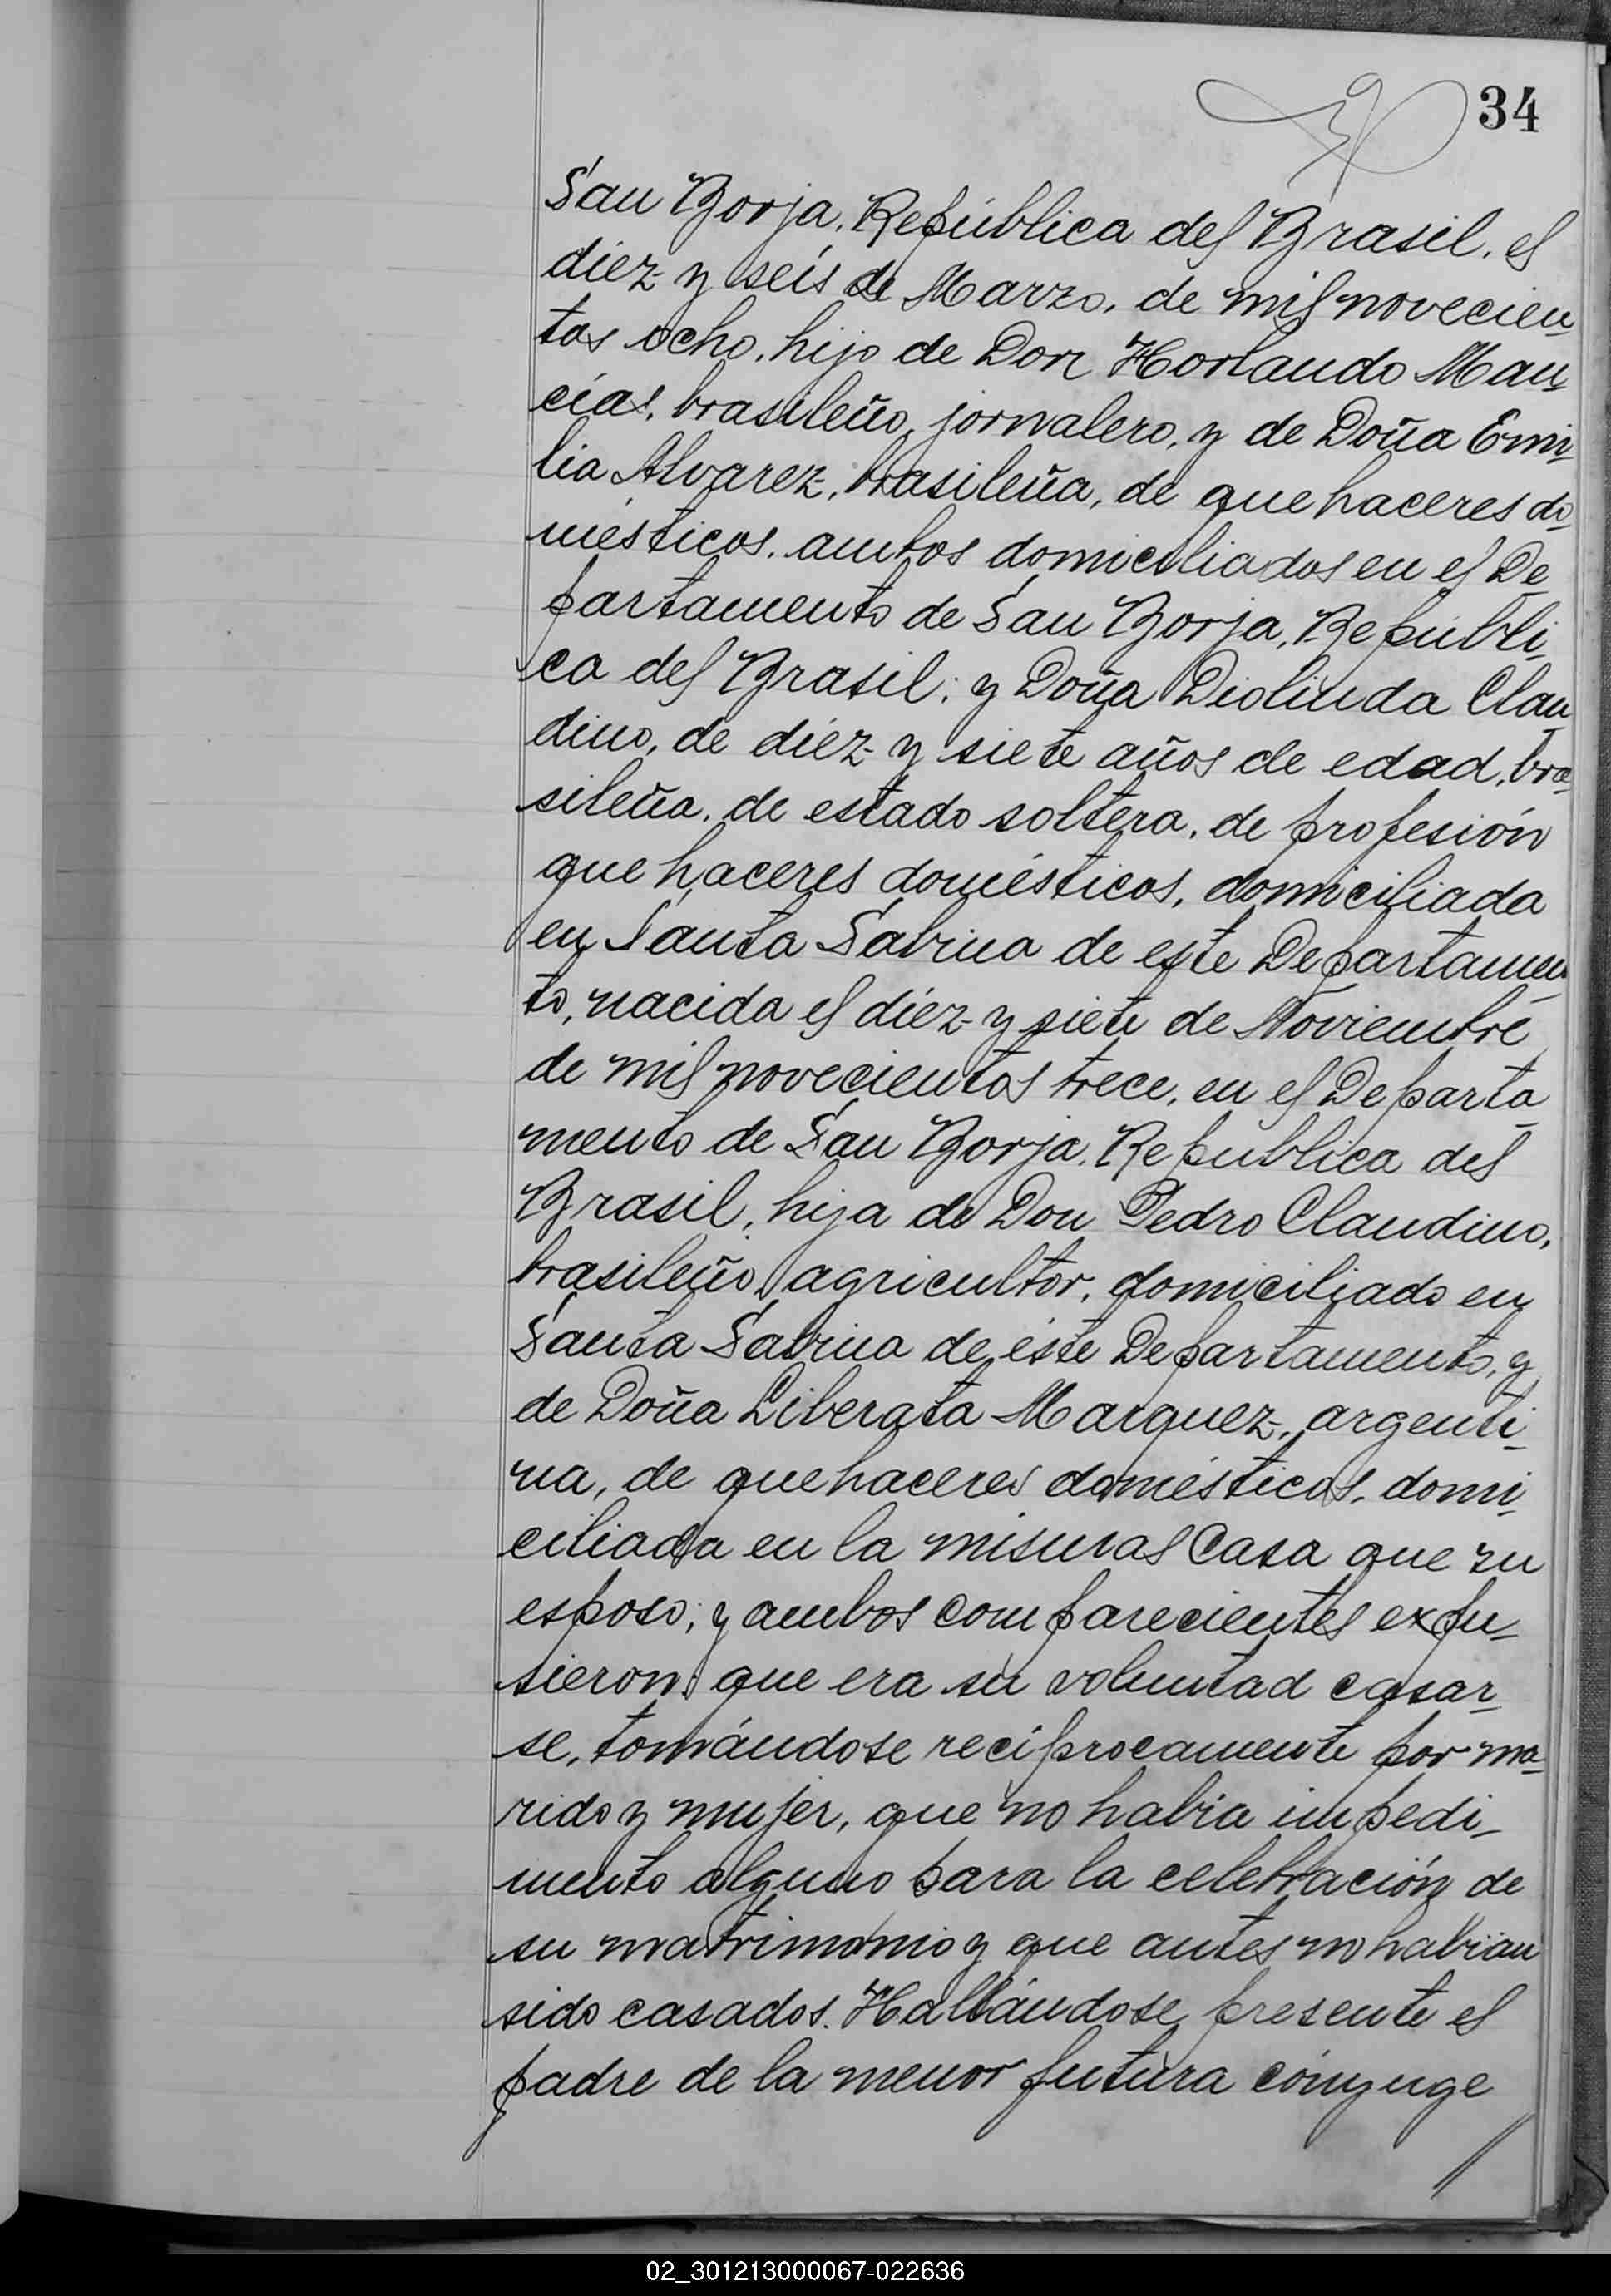 34
San Borja, República del Brasil, el
diez y seis de Marzo, de mil novecien-
tos ocho, hijo de Don Horlando Man-
cias, brasileño, jornalero, y de Doña Emi-
lia Alvarez, brasileña, de quehaceres do-
mésticos, ambos domiciliados en el De-
partamento de San Borja, Repúbli-
ca del Brasil; y Doña Diolinda Clau-
dino, de diez y siete años de edad, bra-
sileña, de estado soltera, de profesión
que haceres domésticos, domiciliada
en Santa Sabina de este Departamen-
to, nacida el diez y siete de Noviembre
de mil novecientos trece, en el Departa-
mento de San Borja, Republica del
Brasil, hija de Don Pedro Claudino,
brasileño, agricultor, domiciliado en
Santa Sabina de éste Departamento, y
de Doña Liberata Marquez, argenti-
na, de quehaceres domésticos, domi-
ciliada en la misma Casa que su
esposo; y ambos comparecientes expu-
sieron: que era su voluntad casar-
se, tomándose recíprocamente por ma-
rido y mujer, que no habia impedi-
mento alguno para la celebración de
su matrimonio y que antes no habian
sido casados. Hallándose presente el
padre de la menor futura cónyuge
02_301213000067-022636